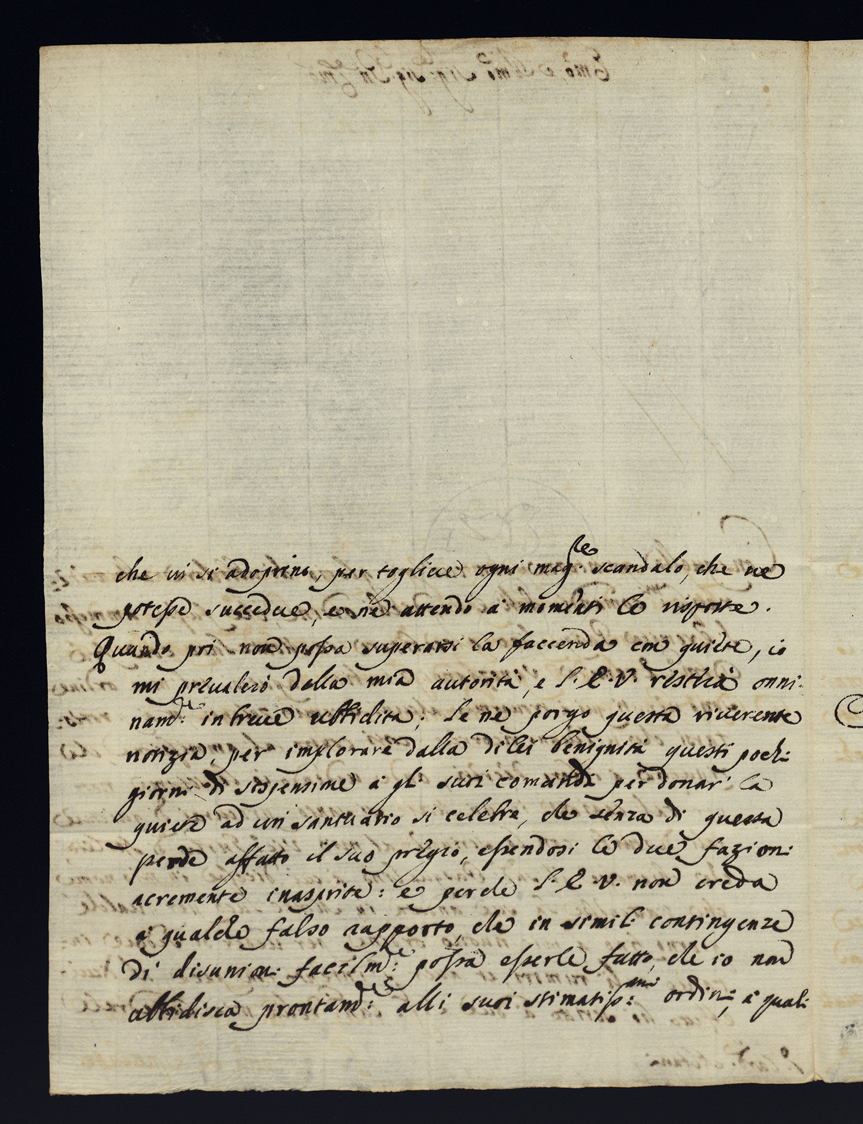 che vi si adoprino, per togliere ogni magg:re scandalo, che ne
potesse succedere, e ne attendo a momenti le risposte.
Quando poi non possa superarsi la faccenda con quiete, io
mi prevalerò della mia autorità, e S. E. V. resterà onni-
nam:te in breve ubbidita; Le ne porgo questa riverente
notizia, per implorare dalla di lei benignità questi pochi
giorni di sospensione a gli suoi comandi per donar la
quiete ad un santuario si celebre, che senza di questa
perde affatto il suo pregio, essendosi le due fazioni
acremente inasprite: e perche S. E. V. non creda
a qualche falso rapporto, che in simili contingenze
di disunioni facilm:te possa esserle fatto, che io non
ubbidisca prontam:te alli suoi stimatiss:mi ordini, a quali